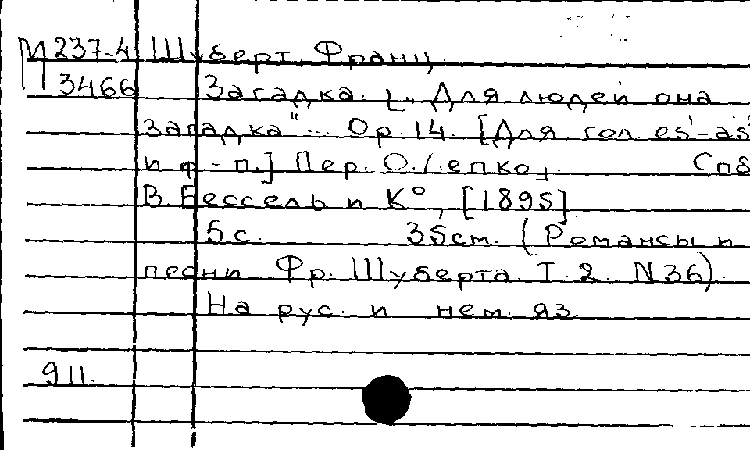 М 237-4 Шуберт, Франц
3466 Загадка. [„Для людей она
загадка"... Ор. 14. [Для гол. es'-as'
и ф-п.] Пер. О. Лепко, Спб
В. Бессель и К°, [1895]
5 с. 35 см. (Романсы и
песни Фр. Шуберта. Т. 2. N 36)
На рус. и нем. яз.
911.